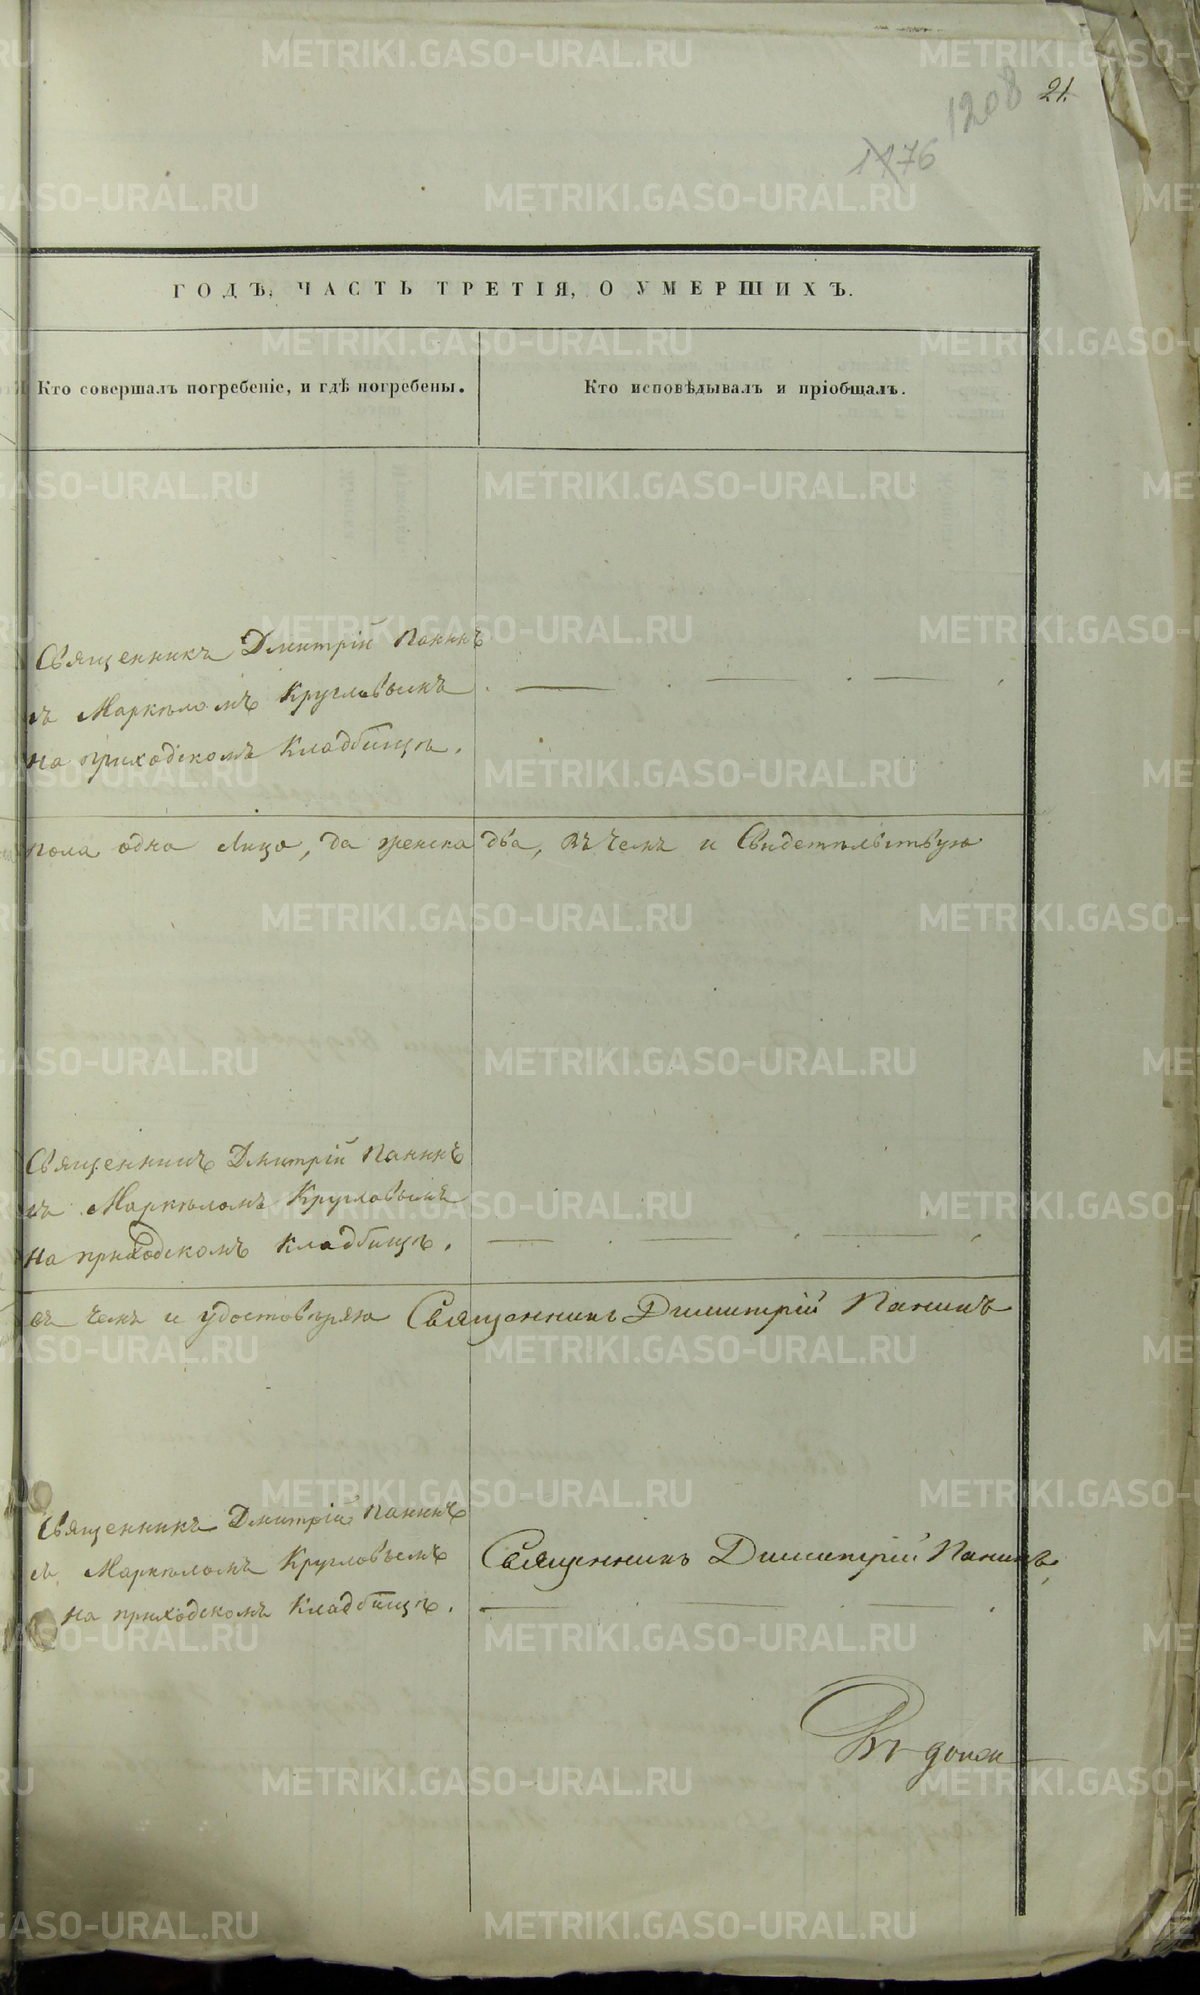 21.
1208
1176
ГОДѢ, ЧАСТЬ ТРЕТІЯ, О УМЕРШИХЪ.
Кто совершалъ погребеніе, и гдѣ погребены.
Кто исповѣдывалъ и пріобщалъ.
Священникъ Дмитрій Панинъ
съ Маркѣломъ Кругловымъ
на приходскомъ кладбищѣ.
пола одно лицо, да женска два, въ чемъ и Свидетельствую
Священникъ Дмитрій Панинъ
съ Маркѣломъ Кругловымъ
на приходскомъ кладбищѣ.
въ чемъ и удостовѣряю Священникъ Димитрій Панинъ
Священникъ Дмитрій Панинъ
съ Маркѣломъ Кругловымъ
на приходскомъ кладбищѣ.
Священникъ Димитрій Панинъ
METRIKI.GASO-URAL.RU